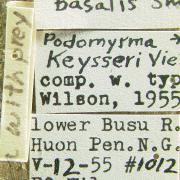 basalis Sm
with prey
Podomyrma →
Keysseri Vie
comp. w. typ
Wilson, 1955
lower Busu R.
Huon Pen.N.G.
V-12-55 #1012